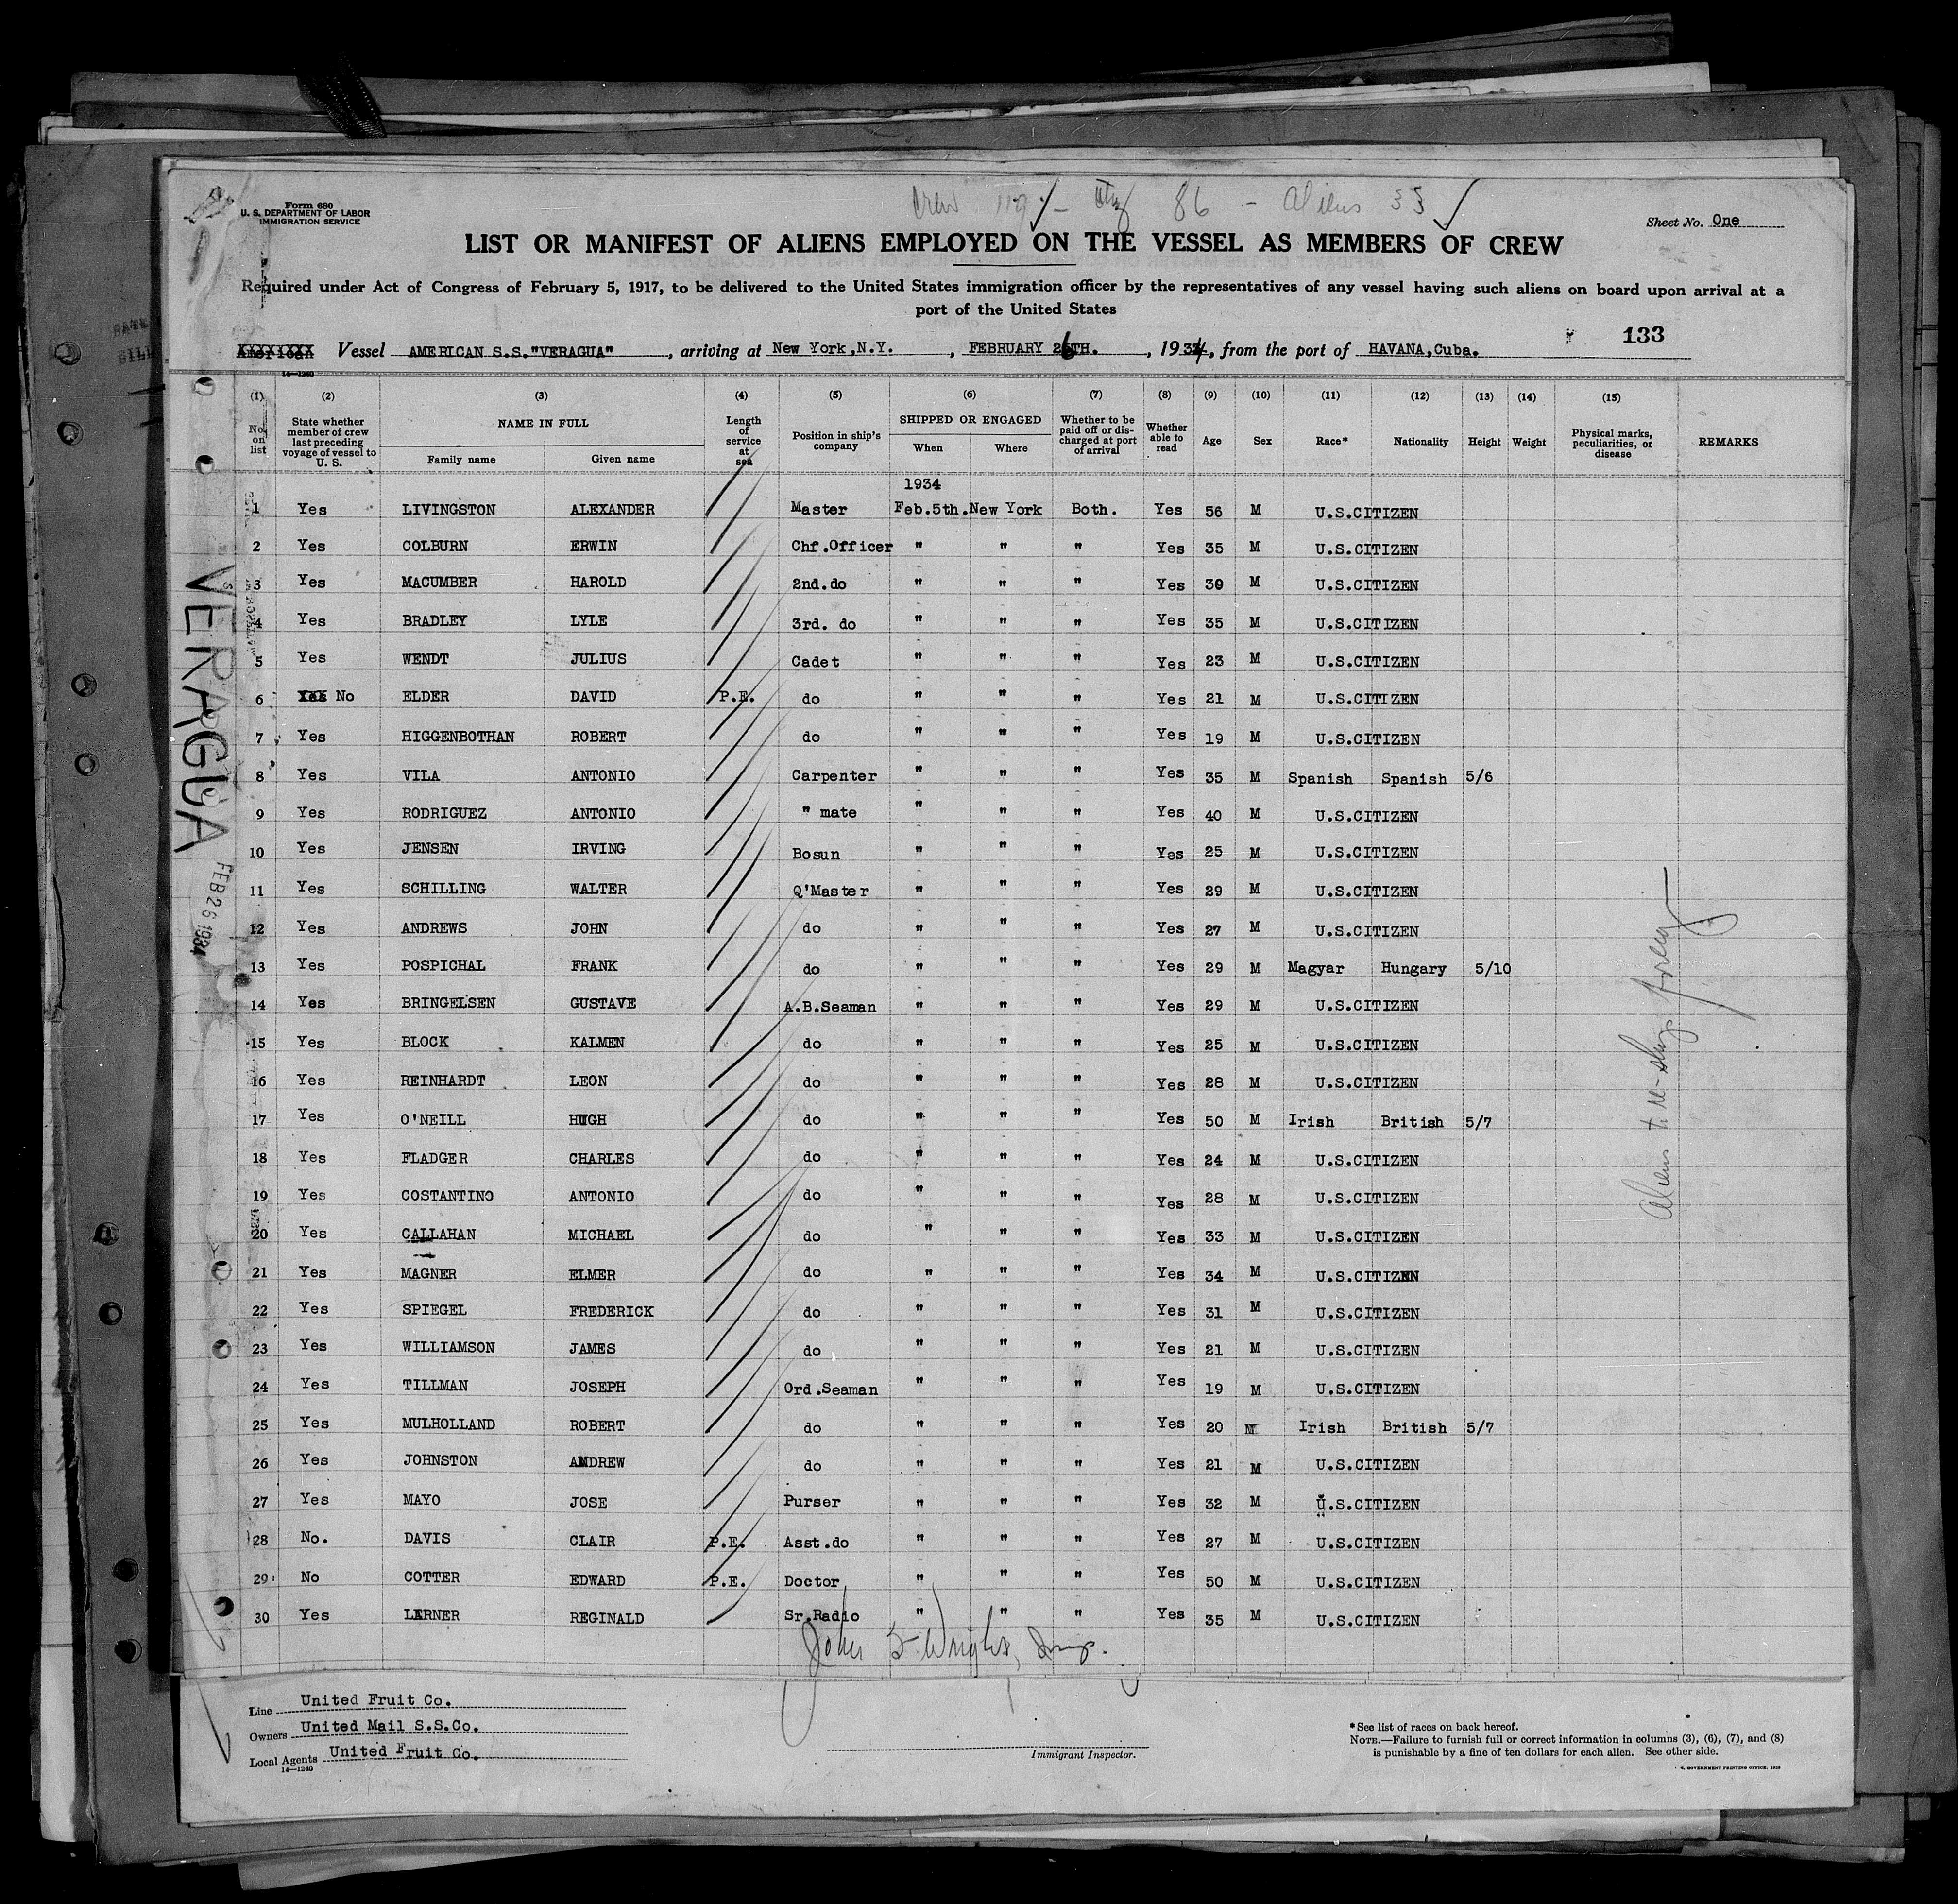 Crew 119 - City 86 - Aliens 33
Form 680
U. S. DEPARTMENT OF LABOR
IMMIGRATION SERVICE
Sheet No. One
LIST OR MANIFEST OF ALIENS EMPLOYED ON THE VESSEL AS MEMBERS OF CREW
Required under Act of Congress of February 5, 1917, to be delivered to the United States immigration officer by the representatives of any vessel having such aliens on board upon arrival at a
port of the United States
133
Vessel AMERICAN S.S."VERAGUA", arriving at New York,N.Y., FEBRUARY 26TH., 1934, from the port of HAVANA,Cuba.
14—1240
(1) (2) (3) (4) (5) (6) (7) (8) (9) (10) (11) (12) (13) (14) (15)
No. on list
State whether member of crew last preceding voyage of vessel to U. S.
NAME IN FULL
Family name Given name
Length of service at sea
Position in ship's company
SHIPPED OR ENGAGED
When Where
Whether to be paid off or discharged at port of arrival
Whether able to read
Age Sex Race* Nationality Height Weight
Physical marks, peculiarities, or disease
REMARKS
1934
1 Yes LIVINGSTON ALEXANDER Master Feb.5th. New York Both. Yes 56 M U.S.CITIZEN
2 Yes COLBURN ERWIN Chf.Officer " " " Yes 35 M U.S.CITIZEN
3 Yes MACUMBER HAROLD 2nd.do " " " Yes 30 M U.S.CITIZEN
4 Yes BRADLEY LYLE 3rd. do " " " Yes 35 M U.S.CITIZEN
5 Yes WENDT JULIUS Cadet " " " Yes 23 M U.S.CITIZEN
6 No ELDER DAVID P.E. do " " " Yes 21 M U.S.CITIZEN
7 Yes HIGGENBOTHAN ROBERT do " " " Yes 19 M U.S.CITIZEN
8 Yes VILA ANTONIO Carpenter " " " Yes 35 M Spanish Spanish 5/6
9 Yes RODRIGUEZ ANTONIO " mate " " " Yes 40 M U.S.CITIZEN
10 Yes JENSEN IRVING Bosun " " " Yes 25 M U.S.CITIZEN
11 Yes SCHILLING WALTER Q'Master " " " Yes 29 M U.S.CITIZEN
12 Yes ANDREWS JOHN do " " " Yes 27 M U.S.CITIZEN
13 Yes POSPICHAL FRANK do " " " Yes 29 M Magyar Hungary 5/10
14 Yes BRINGELSEN GUSTAVE A.B.Seaman " " " Yes 29 M U.S.CITIZEN
15 Yes BLOCK KALMEN do " " " Yes 25 M U.S.CITIZEN
16 Yes REINHARDT LEON do " " " Yes 28 M U.S.CITIZEN
17 Yes O'NEILL HUGH do " " " Yes 50 M Irish British 5/7
18 Yes FLADGER CHARLES do " " " Yes 24 M U.S.CITIZEN
19 Yes COSTANTINO ANTONIO do " " " Yes 28 M U.S.CITIZEN
20 Yes CALLAHAN MICHAEL do " " " Yes 33 M U.S.CITIZEN
21 Yes MAGNER ELMER do " " " Yes 34 M U.S.CITIZEN
22 Yes SPIEGEL FREDERICK do " " " Yes 31 M U.S.CITIZEN
23 Yes WILLIAMSON JAMES do " " " Yes 21 M U.S.CITIZEN
24 Yes TILLMAN JOSEPH Ord.Seaman " " " Yes 19 M U.S.CITIZEN
25 Yes MULHOLLAND ROBERT do " " " Yes 20 M Irish British 5/7
26 Yes JOHNSTON ANDREW do " " " Yes 21 M U.S.CITIZEN
27 Yes MAYO JOSE Purser " " " Yes 32 M U.S.CITIZEN
28 No. DAVIS CLAIR P.E. Asst.do " " " Yes 27 M U.S.CITIZEN
29 No COTTER EDWARD P.E. Doctor " " " Yes 50 M U.S.CITIZEN
30 Yes LERNER REGINALD Sr.Radio " " " Yes 35 M U.S.CITIZEN
VERAGUA
FEB 26 1934
Aliens to re-ship foreign
John Wright, Insp.
Line United Fruit Co.
Owners United Mail S.S.Co.
Local Agents United Fruit Co.
14—1240
Immigrant Inspector.
*See list of races on back hereof.
NOTE.—Failure to furnish full or correct information in columns (3), (6), (7), and (8)
is punishable by a fine of ten dollars for each alien. See other side.
GOVERNMENT PRINTING OFFICE.